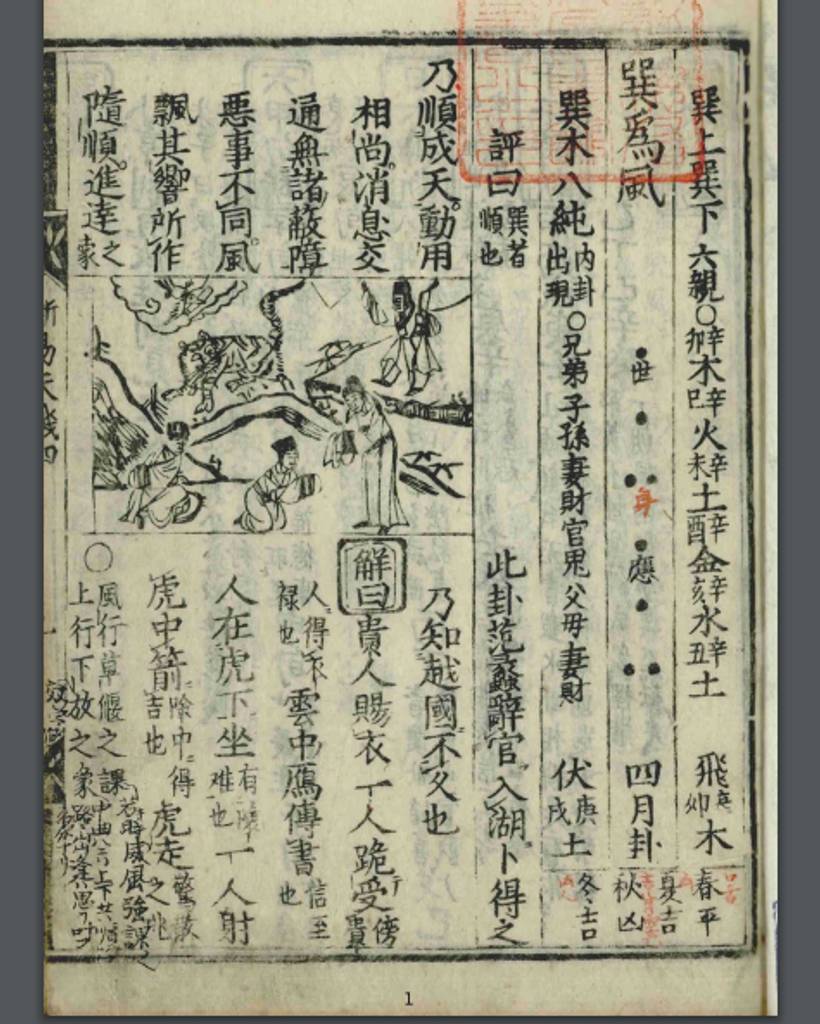 巽上巽下 六親○辛卯木辛巳火辛未土辛酉金辛亥水辛丑土 飛庚卯木
春平
巽爲風 世 身 應 四月卦
夏吉
秋凶
巽木八純 內卦出現 ○兄弟子孫妻財官鬼父母妻財 伏庚戌土
冬吉
評曰 巽者順也 此卦范蠡辭官入湖卜得之
乃順成天動用 乃知越國不久也
相尚消息交
通無諸蔽障
惡事不同風
飄其響所作
隨順進達之象
解曰 貴人賜衣一人跪受
人得衣祿也 雲中鴈傳書 信至也
人在虎下坐 有 难也 一人射
虎中箭 吉也 得虎走 驚散之兆
○
風行草偃之課
上行下放之象
1